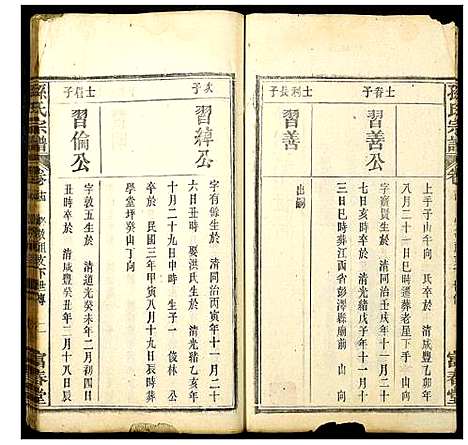 孫氏宗譜
卷
富春堂
上手子山午向 氏 清咸豐乙卯年
八月二十一日巳時遷葬老屋下手
士春子
習善公
字寳賢生於 清同治壬戌年十一月十
七日亥時卒於 清光緒戊子年十一月十
三日巳時葬江西省彭澤縣廟前 山向
士利長子
習善
出嗣
次子
習綽公
字有餘生於 清同治丙寅年十一月二十
六日丑時 娶洪氏生於 清光緒乙亥年
十月二十九日申時 生子一 俊林 公
卒於 民國三年甲寅八月十九日辰時葬
學堂坪癸山丁向
士信子
習倫公
字敦五生於 清道光癸未年二月初四日
丑時卒於 清咸豐癸丑年二月十八日辰
孫氏宗譜
卷
富春堂